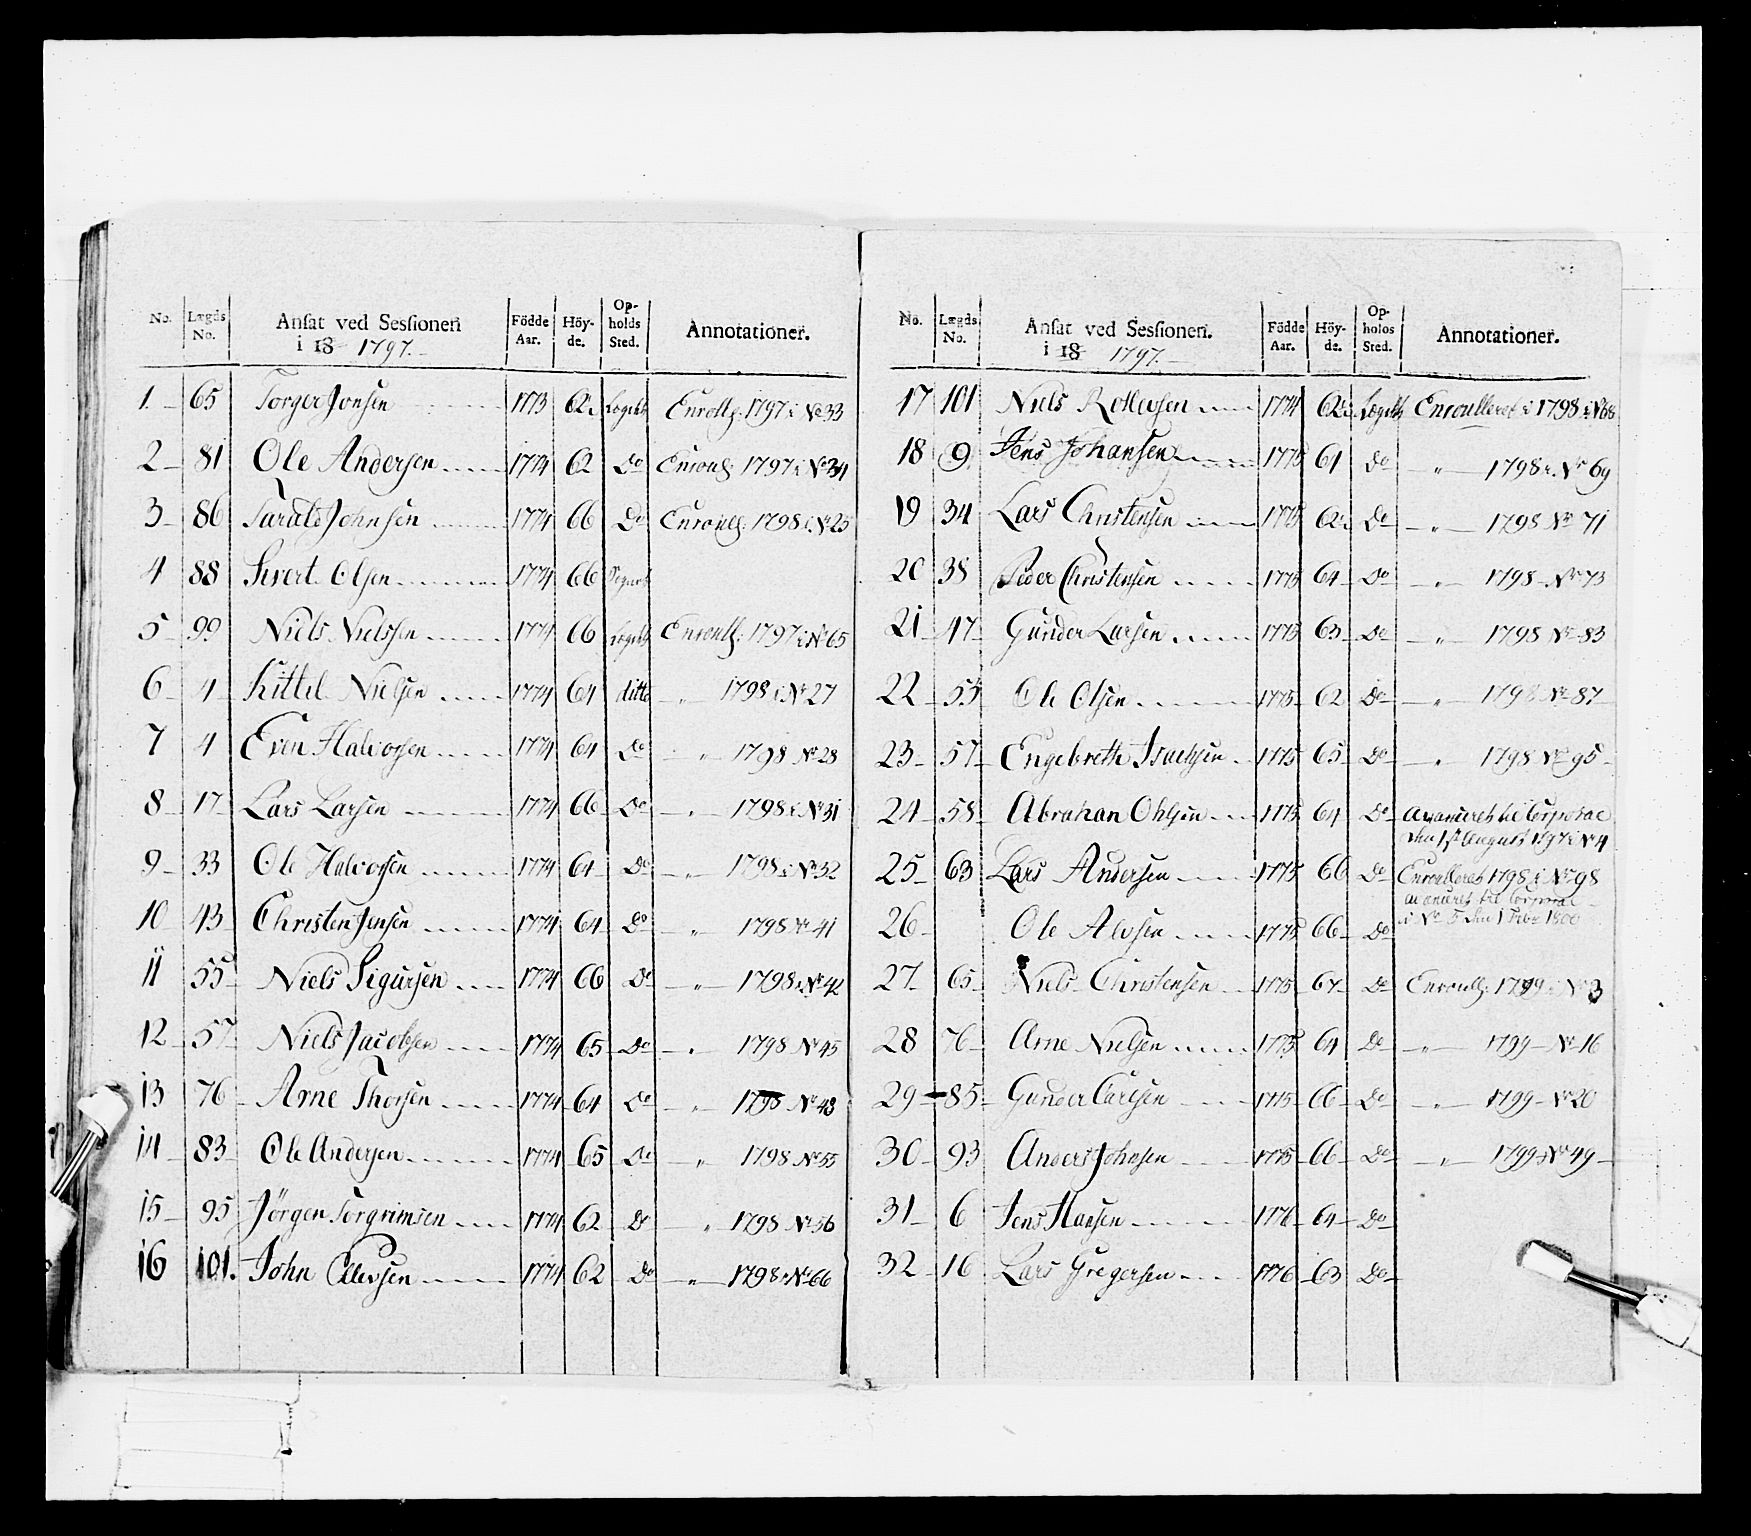 No. Lægds No. Ansat ved Sessionen i 18 1797. Födde Aar. Höy-de. Op-holds Sted. Annotationer.
1. 65 Torger Jonsen 1773 62½ Lægdet Enroullg. 1797 i No 33
2 81 Ole Andersen 1774 62 Do Enroulg. 1797 i No 34
3 86 Tarald Johnsen 1774 66 Do Enroullg. 1798 i No 25
4 88 Sivert Olsen 1774 66
5 99 Niels Nielssen 1774 66 Lægdet Enroullg. 1797 i No 65
6 4 Kittel Nielsen 1774 64 ditto — " — 1798 i No 27
7 4 Even Halvorsen 1774 64 Do " 1798 No 28
8 17 Lars Larsen 1774 66 Do — " — 1798 i No 31
9 33 Ole Halvorsen 1774 64 Do — " — 1798 i No 32
10 43 Christen Jensen 1774 64 Do — " — 1798 No 41
11 55 Niels Sigursen 1774 66 Do — " — 1798 i No 42
12 57 Niels Jacobsen 1774 65 Do — " — 1798 No 45
13 76 Arne Thorsen 1774 64 Do — " — 1798 No 48
14 83 Ole Andersen 1774 65 Do — " — 1798 No 55
15 95 Jörgen Torgrimsen 1774 62 Do " 1798 No 56
16 101. John Ellevsen 1774 62 Do — " — 1798 i No 66
No. Lægds No. Ansat ved Sessionen. i 18 1797. Födde Aar. Höy-de. Op-holds Sted. Annotationer.
17 101 Niels Rollevsen 1774 62½ Lægdet Enroulleret i 1798 i No 68
18 9 Jens Johansen 1775 61 Do — " — 1798 i No 69
19 34 Lars Christensen 1775 62½ Do — " — 1798 No 71
20 38 Peder Christensen 1775 64 Do — " — 1798 No 73
21 47 Gunder Larsen 1775 63 Do — " — 1798 No 83
22 55 Ole Olsen 1775 62 Do — " — 1798 No 87
23 57 Engebreth Isachsen 1775 65 Do — " — 1798 No 95
24 58 Abrahan Ohlsen 1775 64 Do avanceret til Corporal
den 1st August 1797 i No 4
25 63 Lars Andersen 1775 66 Do Enroulleret 1798 i No 98
avanceret til Corporal
i No 5 den 1 Febr 1800
26 Ole Alvsen 1775 66 Do
27 65 Niels Christensen 1775 67 Do Enroullg. 1799 i No 3
28 76 Arne Nielsen 1775 64 Do — " — 1799 No 16
29 85 Gunder Carlsen 1775 66 Do — " — 1799 No 20
30 93 Anders Johnsen 1775 66 Do — " — 1799 i No 49
31 6 Jens Hansen 1776 64 Do
32 16 Lars Gregersen 1776 63 Do